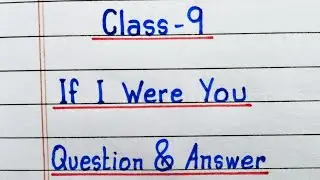 Class-9
If I Were You
Question & Answer